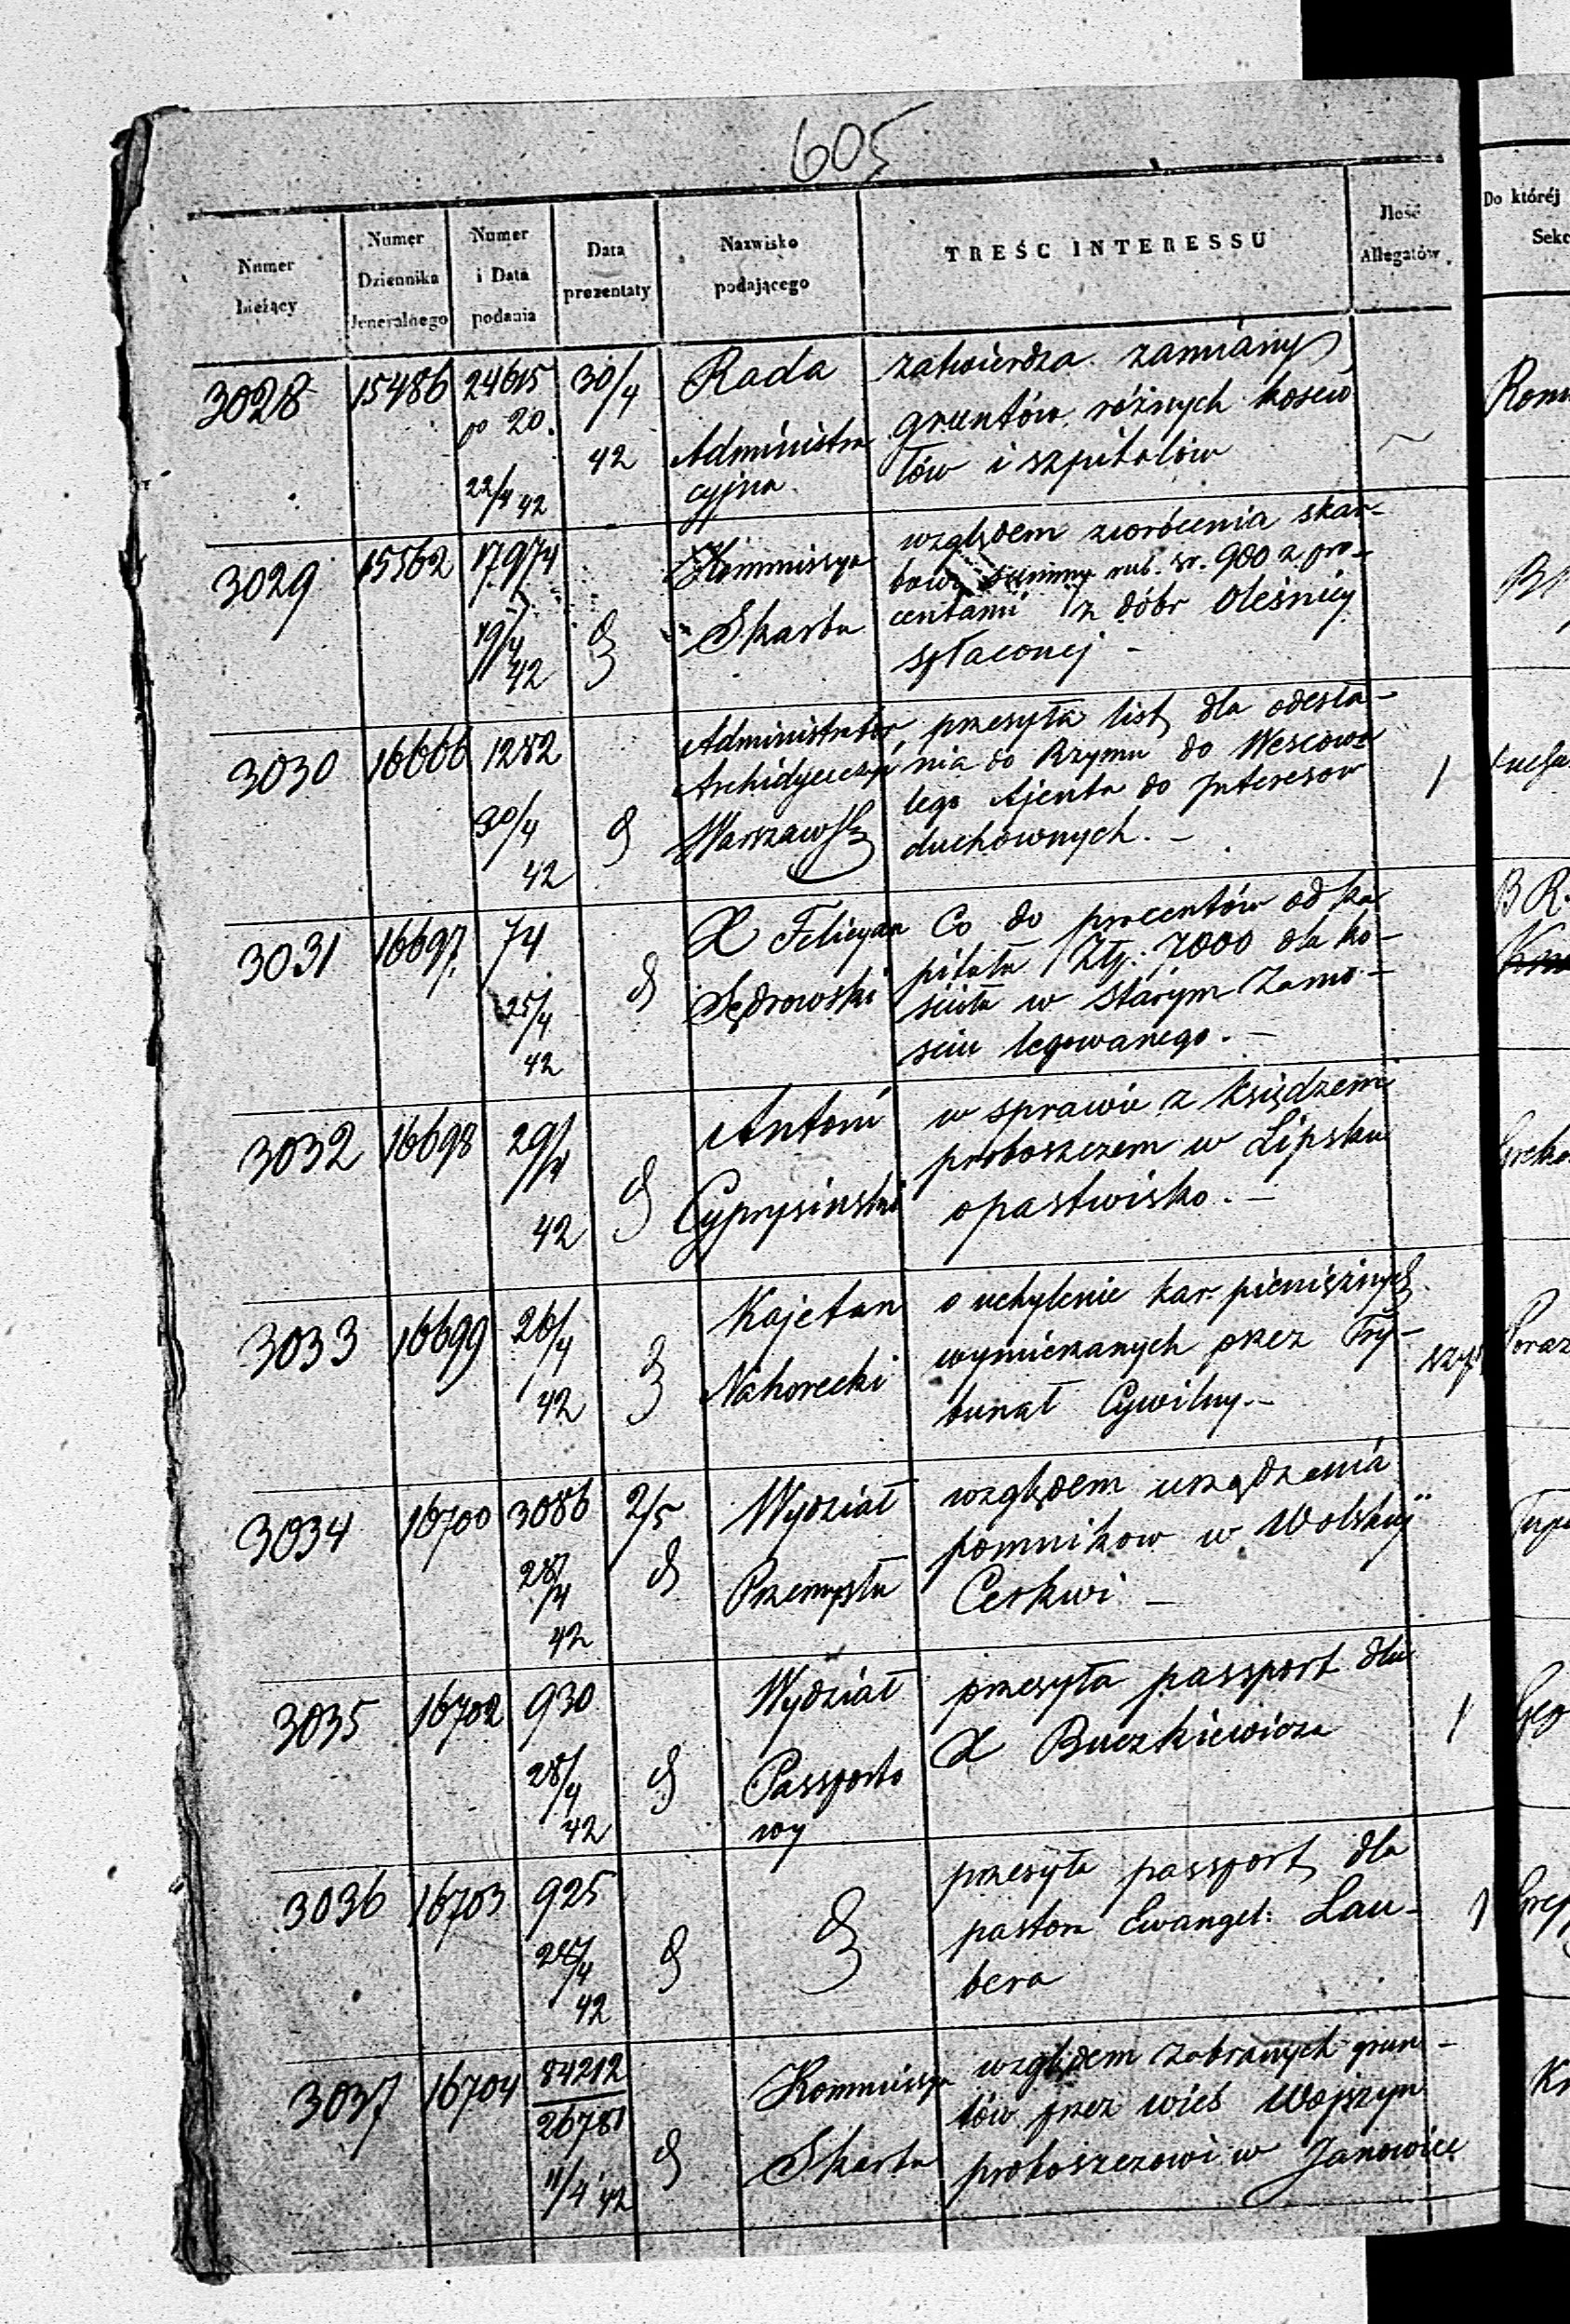 605
Numer bieżący
Numer Dziennika Jeneralnego
Numer i Data podania
Data prezentaty
Nazwisko podającego
TREŚĆ INTERESSU
Ilość Allegatów
Do któréj
Sekc
3028 15486 24615 30/4 Rada zatwierdza zamiány
20. 42 Administra gruntów różnych koscio
22/4 42 cyjna łów i szpitalów
3029 15562 17974 Kommissya względem zwrócenia skar-
bowi summy rub. sr. 900 z pro-
19/4 42 Skarbu centami z dóbr Oleśnicy
spłaconej -
3030 16666 1282 Administrator przesyła list dla odesła-
Archidyecezyi nia do Rzymu do
30/4 Warszawsk tego Ajenta do Interesow
42 duchownych. -
3031 16697 74 X Felicyan Co do procentów od ka
pitału Złp: 7000 dla ko-
25/4 Sędrowski scioła w Starym Zamo-
42 sciu legowanego. -
3032 16698 29/4 Antoni w sprawie z księdzem
proboszczem w Lipsku
42 Cyprysinski o pastwisko. -
3033 16699 26/4 Kajetan o uchylenie kar pieniężnych
Nahorecki wymierzanych przez Try-
42 bunał Cywilny. -
3034 16700 3086 2/5 Wydział względem urządzenia
28/4 pomnikow w Wolskiej
42 Przemysłu Cerkwi -
3035 16702 930 Wydział przesyła passport dla
28/4 Passporto X Buczkiewicza 1
42 wy
3036 16703 925 przesyła passport dla
28/4 pastora Ewangel: Lau- 1
42 bera
3037 16704 84212 Kommissya względem zabranych grun-
26781 tów przez wieś Wojszyn
11/4 42 Skarbu proboszczowi w Janowice